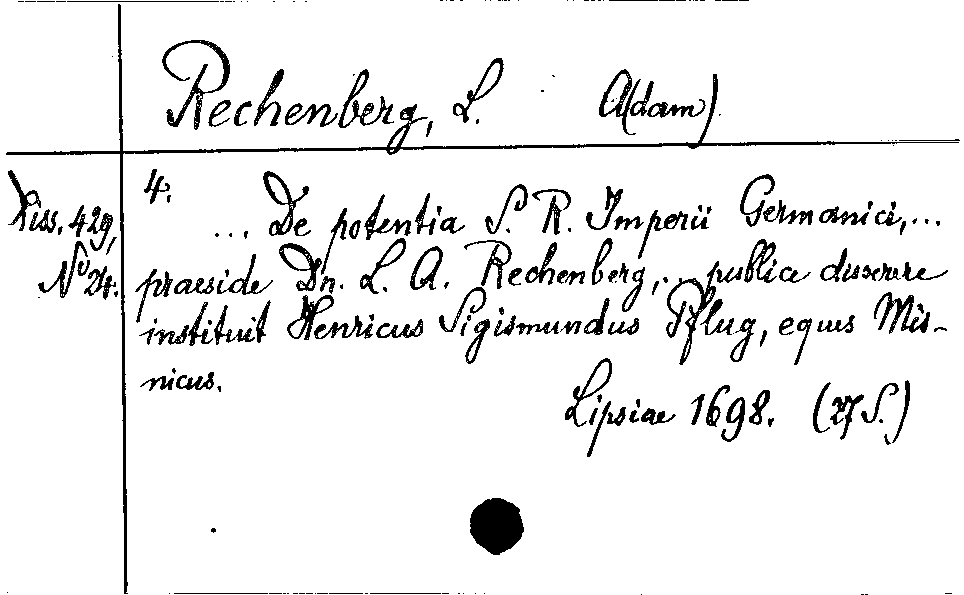 Rechenberg, L. A(dam)
Diss. 429,
No 24.
4.
... De potentia S. R. Imperii Germanici, ...
praeside Dn. L. A. Rechenberg, ... publice disserere
instituit Henricus Sigismundus Pflug, eques Mis-
nicus.
Lipsiae 1698. (27 S.)